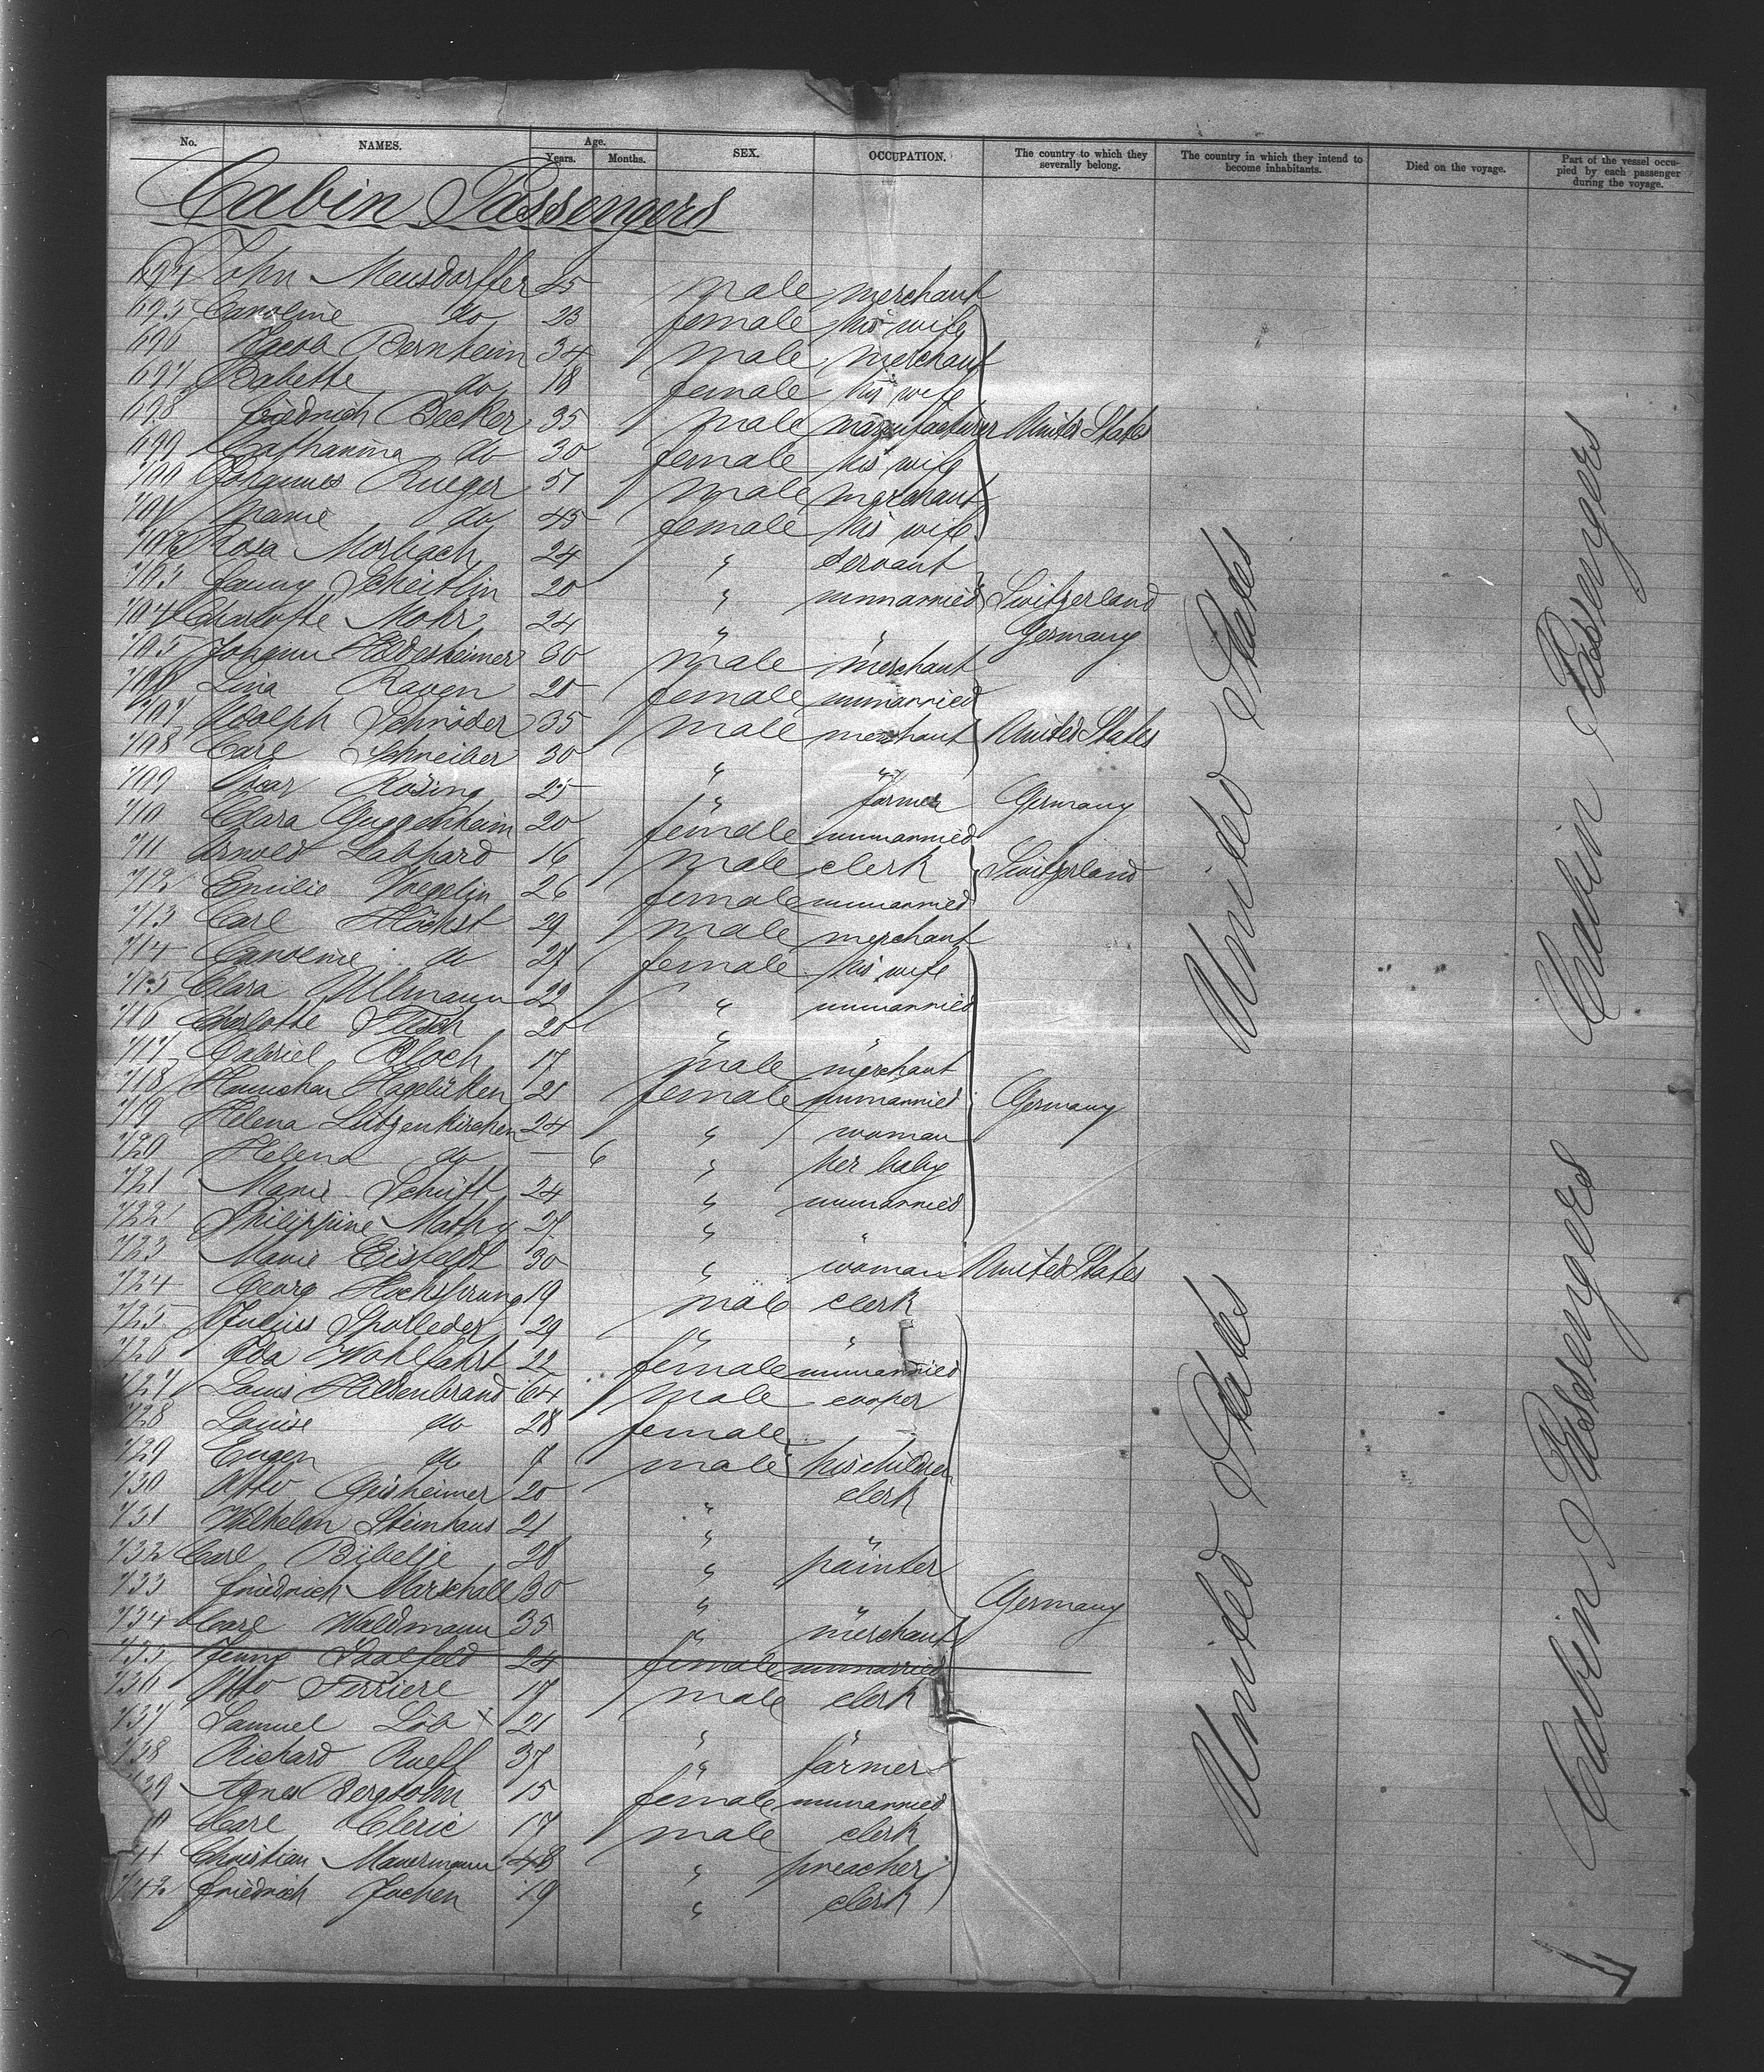 No. NAMES. Age. Years. Months. SEX. OCCUPATION. The country to which they severally belong. The country in which they intend to become inhabitants. Died on the voyage. Part of the vessel occupied by each passenger during the voyage.
Cabin Passengers
694 John Meusdorffer 45 male merchant
695 Caroline do 23 female his wife
696 Jacob Bernheim 34 male merchant
697 Babette do 18 female his wife
698 Friedrich Becker 35 male manufacturer United States
699 Catharina do 30 female his wife
700 Johannes Rueger 51 male merchant
701 Marie do 45 female his wife
702 Rosa Morbach 24 " servant
703 Fanny Scheitlin 20 " unmarried Switzerland
704 Charlotte Mohr 24 " " Germany
705 Johann Hildesheimer 30 male merchant
706 Lina Raven 20 female unmarried
707 Adolph Schröder 35 male merchant United States
708 Carl Schreiber 30 " "
709 Oscar Rösing 25 " farmer Germany
710 Clara Guggenheim 20 female unmarried
711 Arnold Labhard 16 male clerk Switzerland
712 Emilie Voegelin 26 female unmarried
713 Carl Höchst 29 male merchant
714 Caroline do 27 female his wife
715 Clara Ullmann 22 " unmarried
716 Charlotte Flesch 20 " "
717 Gabriel Bloch 17 male merchant
718 Hannchen Hagelüken 21 female unmarried Germany
719 Helena Lützenkirchen 24 " woman
720 Helena do — 6 " her baby
721 Marie Schuft 24 " unmarried
722 Philippine Mathy 27 " "
723 Marie Eisfeldt 30 " woman United States
724 Georg Hochsprung 19 male clerk
725 Julius Sporleder 29 " "
726 Ida Wohlfahrt 22 female unmarried
727 Louis Hildenbrand 64 male cooper
728 Louise do 28 female
729 Eugen do 7 male his children
730 Otto Geisheimer 20 " clerk
731 Wilhelm Steinhaus 21 "
732 Carl Bibelje 28 " painter
733 Friedrich Marschall 30 " Germany
734 Carl Waldmann 35 " merchant
735 Jenny Saalfeld 24 female unmarried
736 Otto Ferriere 17 male clerk
737 Samuel Löb x 21 " "
738 Richard Rueff 37 " farmer
739 Agnes Bergbohm 15 female unmarried
0 Carl Cleric 17 male clerk
41 Christian Mauermann 48 " preacher
742 Friedrich Jochen 19 " clerk
United States
United States
Cabin Passengers
Cabin Passengers